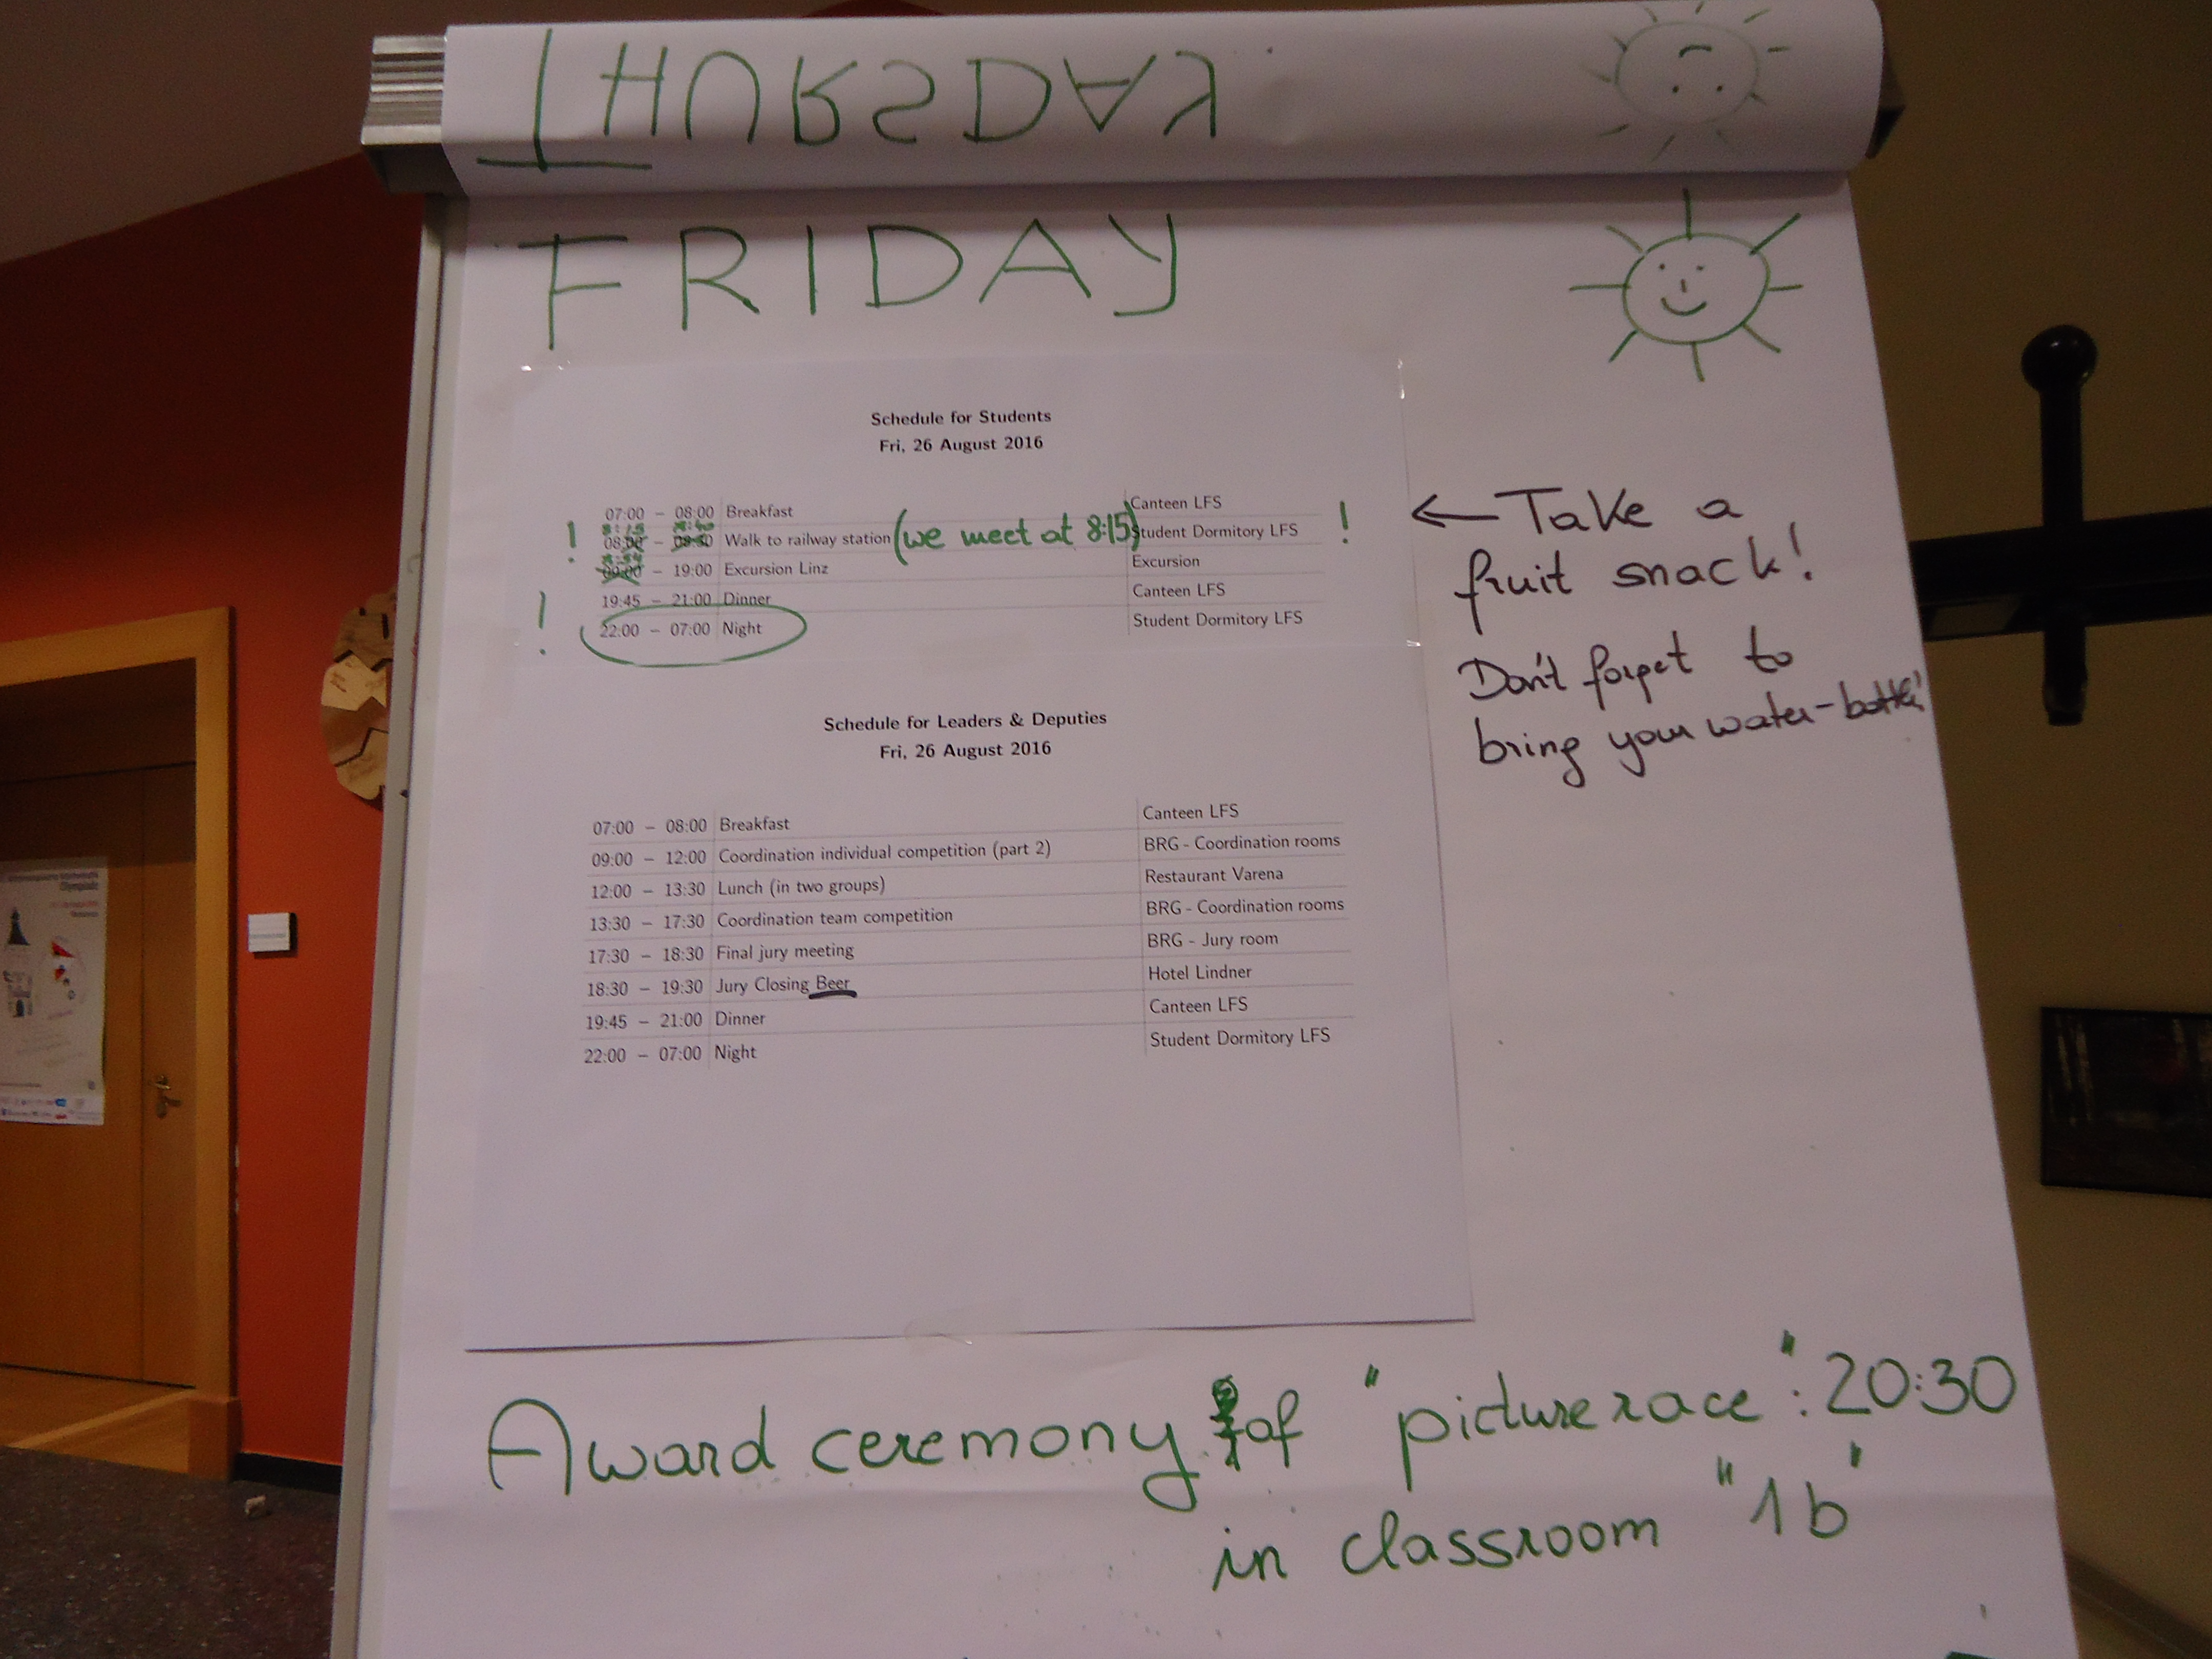 THURSDAY
FRIDAY
Schedule for Students
Fri, 26 August 2016
07:00 – 08:00 Breakfast Canteen LFS
! 8:15 8:40
08:00 – 08:30 Walk to railway station (we meet at 8:15) Student Dormitory LFS !
8:54
09:00 – 19:00 Excursion Linz Excursion
19:45 – 21:00 Dinner Canteen LFS
! 22:00 – 07:00 Night Student Dormitory LFS
← Take a
fruit snack!
Don't forget to
bring your water-bottle!
Schedule for Leaders & Deputies
Fri, 26 August 2016
07:00 – 08:00 Breakfast Canteen LFS
09:00 – 12:00 Coordination individual competition (part 2) BRG - Coordination rooms
12:00 – 13:30 Lunch (in two groups) Restaurant Varena
13:30 – 17:30 Coordination team competition BRG - Coordination rooms
17:30 – 18:30 Final jury meeting BRG - Jury room
18:30 – 19:30 Jury Closing Beer Hotel Lindner
19:45 – 21:00 Dinner Canteen LFS
22:00 – 07:00 Night Student Dormitory LFS
Award ceremony of "picture race": 20:30
in classroom "1b"
Olympiade